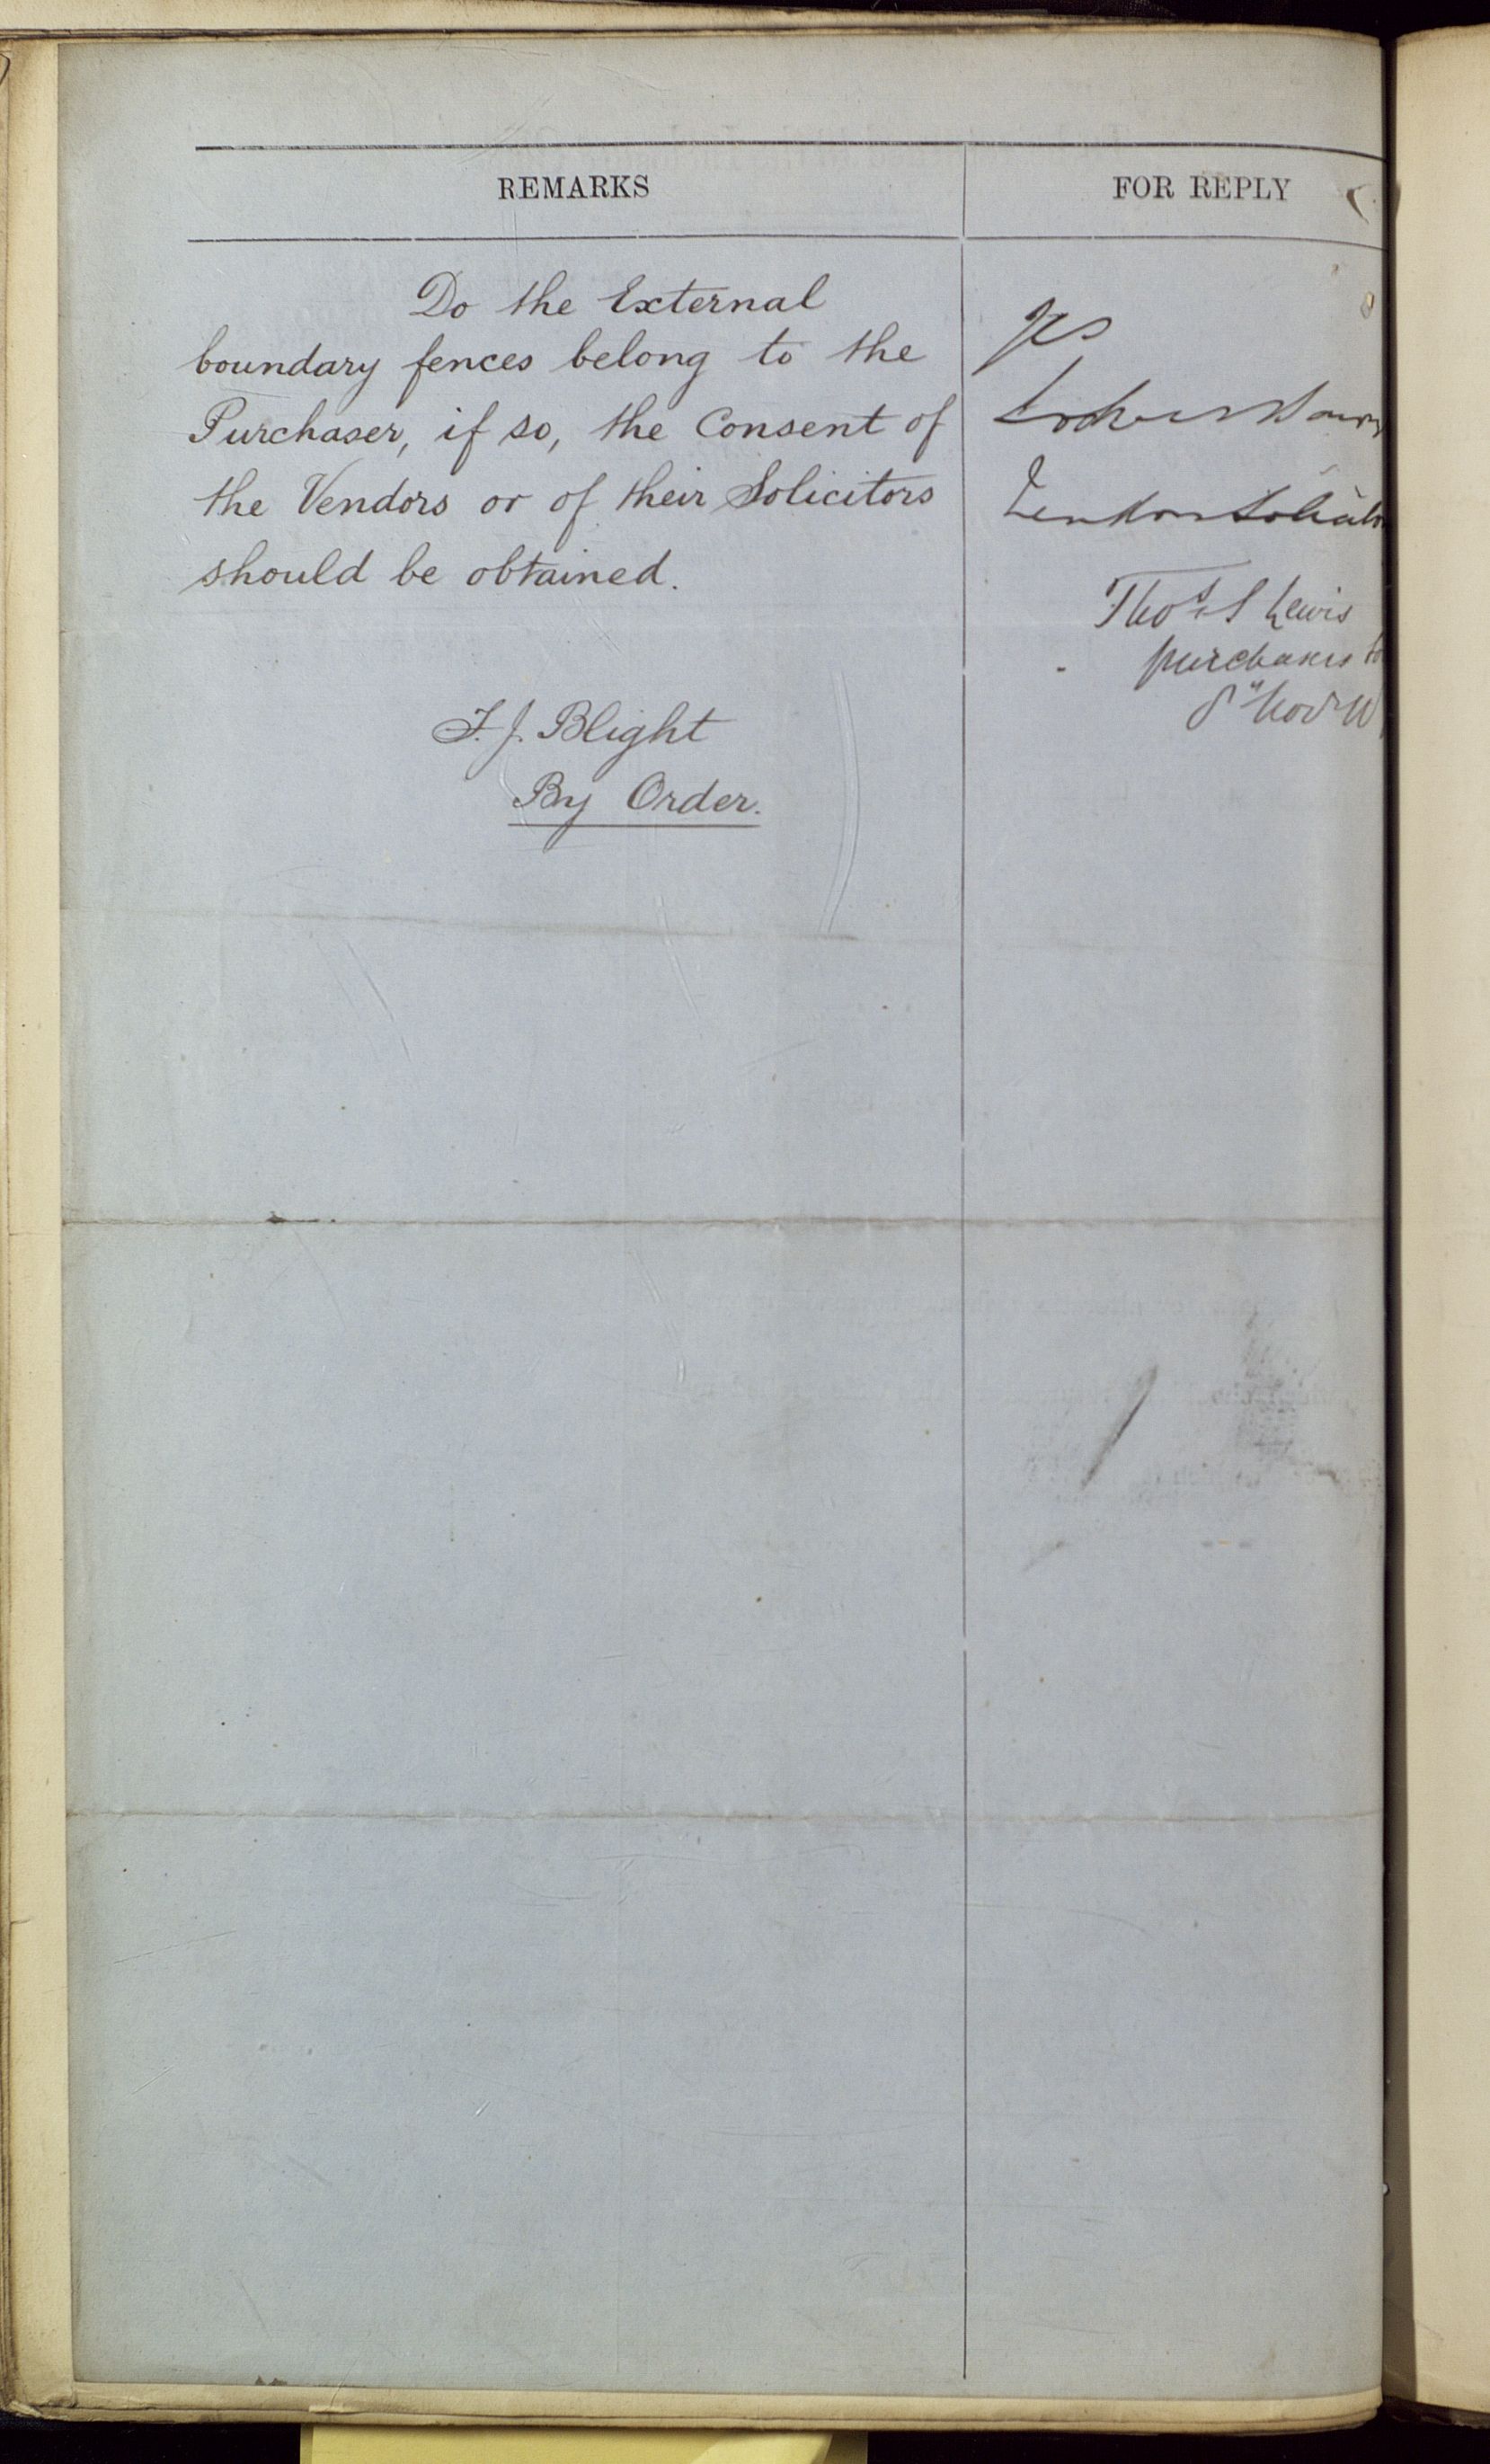 REMARKS
FOR REPLY
Do the External
boundary fences belong to the
Purchaser, if so, the Consent of
the Vendors or of their Solicitors
should be obtained.
F. J. Blight
By Order.
Yes
Thos S Lewis
purchasers